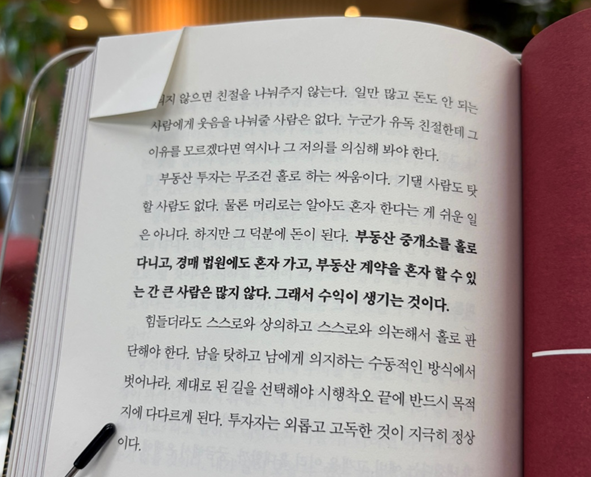 않으면 친절을 나눠주지 않는다. 일만 많고 돈도 안 되는
사람에게 웃음을 나눠줄 사람은 없다. 누군가 유독 친절한데 그
이유를 모르겠다면 역시나 그 저의를 의심해 봐야 한다.
부동산 투자는 무조건 홀로 하는 싸움이다. 기댈 사람도 탓
할 사람도 없다. 물론 머리로는 알아도 혼자 한다는 게 쉬운 일
은 아니다. 하지만 그 덕분에 돈이 된다. 부동산 중개소를 홀로
다니고, 경매 법원에도 혼자 가고, 부동산 계약을 혼자 할 수 있
는 간 큰 사람은 많지 않다. 그래서 수익이 생기는 것이다.
힘들더라도 스스로와 상의하고 스스로와 의논해서 홀로 판
단해야 한다. 남을 탓하고 남에게 의지하는 수동적인 방식에서
벗어나라. 제대로 된 길을 선택해야 시행착오 끝에 반드시 목적
지에 다다르게 된다. 투자자는 외롭고 고독한 것이 지극히 정상
이다.